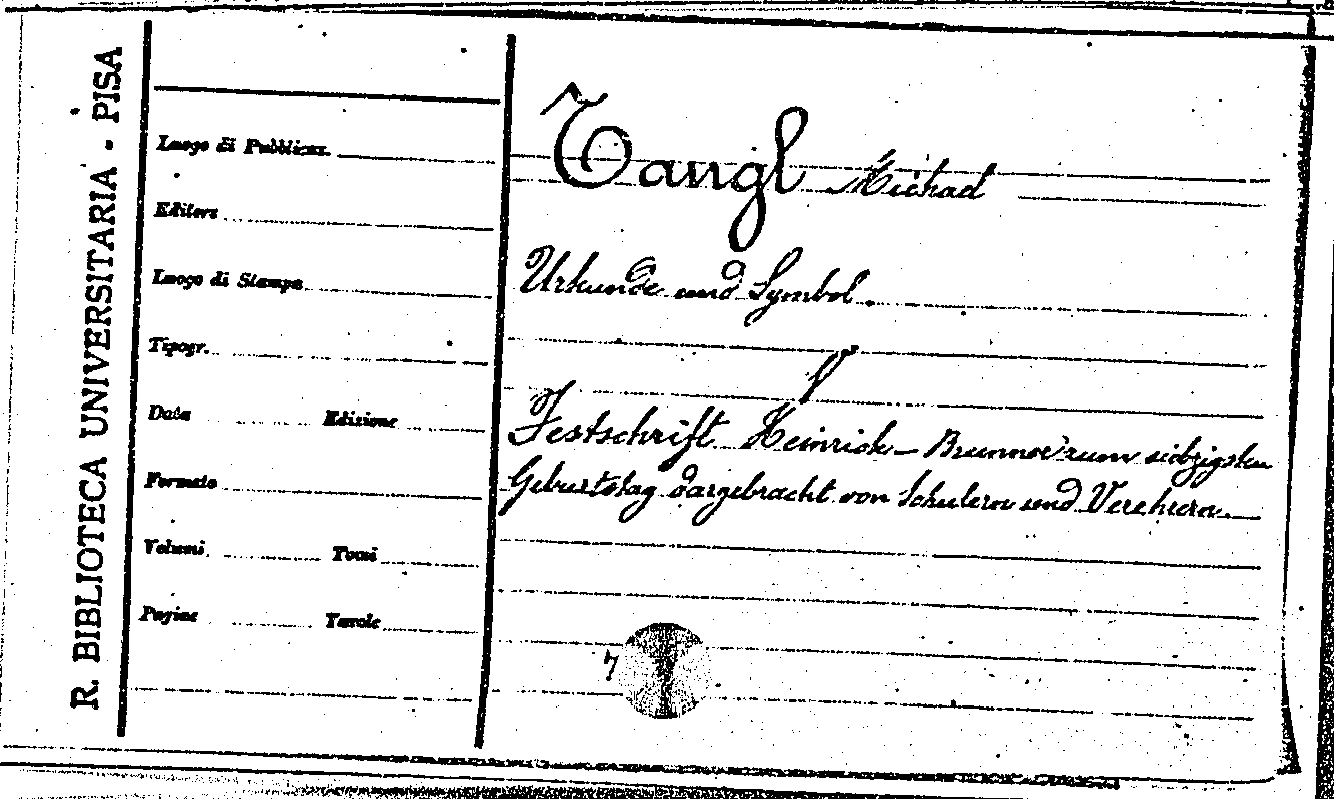 R. BIBLIOTECA UNIVERSITARIA - PISA
Luogo di Pubblicaz.
Editore
Luogo di Stampa
Tipogr.
Data Edizione
Formato
Volumi Tomi
Pagine Tavole
Tangl Michael
Urkunde und Symbol.
Festschrift Heinrich Brunner zum siebzigsten
Geburtstag dargebracht von Schulern und Verehrern.
7